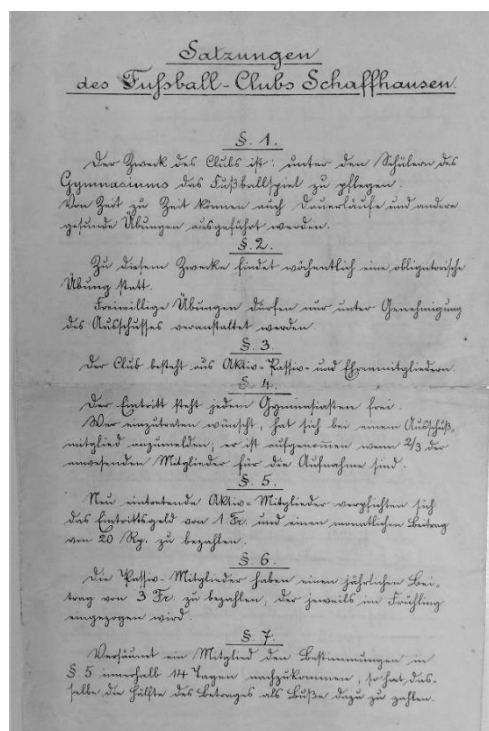 Satzungen
des Fußball-Clubs Schaffhausen.
§. 1.
Der Zweck des Clubs ist: unter den Schülern des
Gymnasiums das Fußballspiel zu pflegen.
Von Zeit zu Zeit können auch Dauerläufe und andere
gesunde Übungen ausgeführt werden.
§. 2.
Zu diesem Zwecke findet wöchentlich eine obligatorische
Übung statt.
Freiwillige Übungen dürfen nur unter Genehmigung
des Ausschusses veranstaltet werden.
§. 3.
Der Club besteht aus Aktiv- Passiv- und Ehrenmitgliedern.
§. 4.
Der Eintritt steht jedem Gymnasiasten frei.
Wer einzutreten wünscht, hat sich bei einem Ausschuß-
mitglied anzumelden; er ist aufgenommen wenn 2/3 der
anwesenden Mitglieder für die Aufnahme sind.
§. 5.
Neu eintretende Aktiv-Mitglieder verpflichten sich
das Eintrittsgeld von 1 Fr. und einen monatlichen Beitrag
von 20 Rp. zu bezahlen.
§. 6.
Die Passiv-Mitglieder haben einen jährlichen Bei-
trag von 3 Fr. zu bezahlen, der jeweils im Frühling
eingezogen wird.
§. 7.
Versäumt ein Mitglied den Bestimmungen in
§. 5 innerhalb 14 Tagen nachzukommen, so hat das-
selbe die Hälfte des Betrages als Buße dazu zu zahlen.